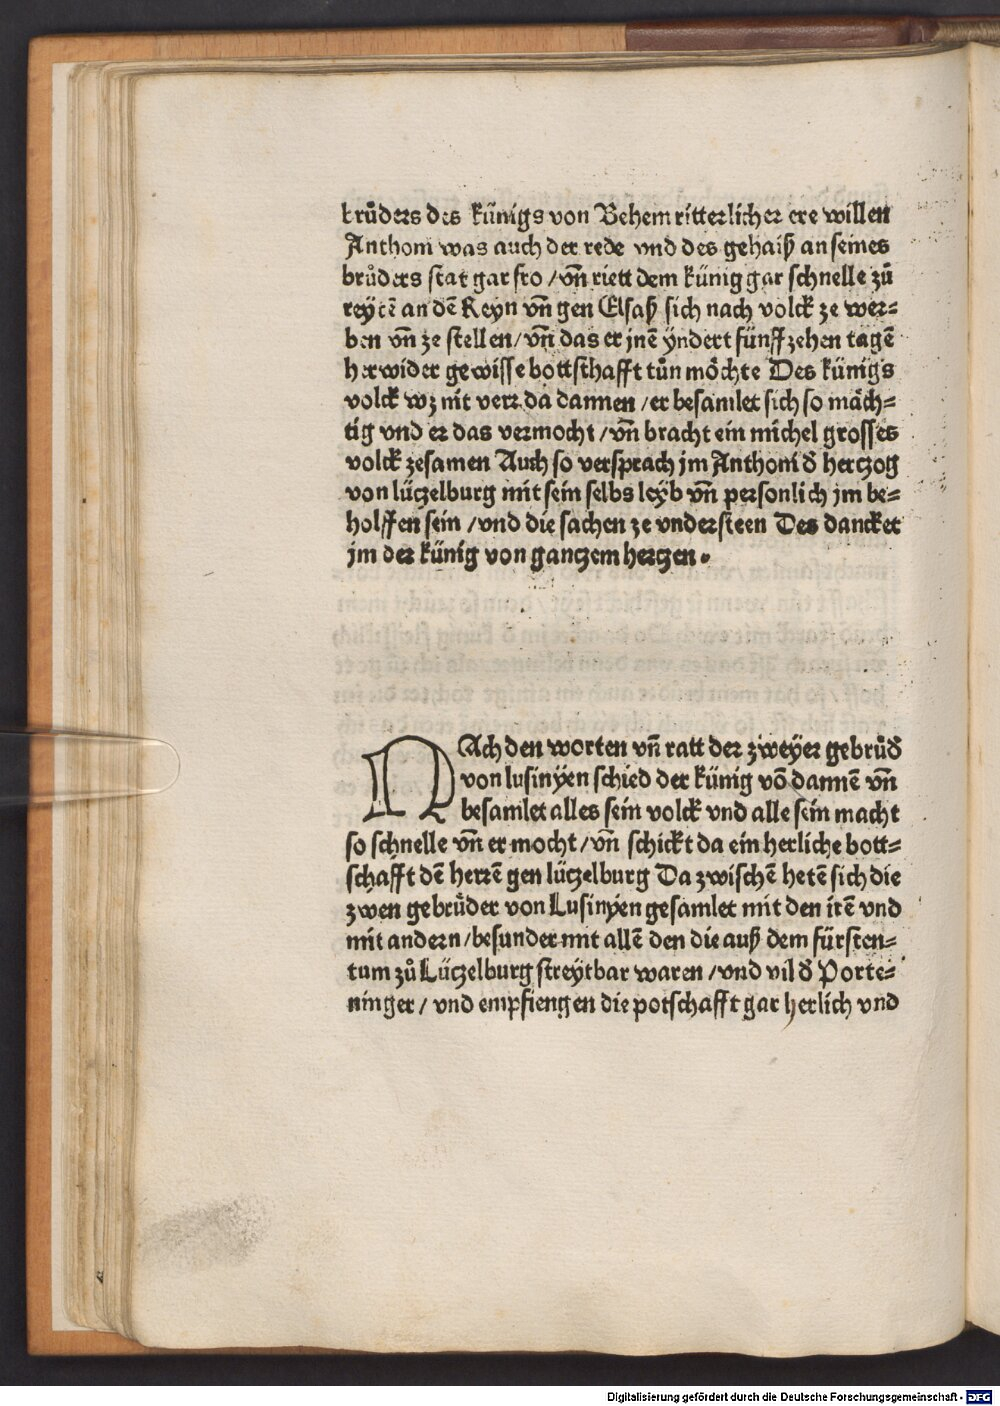 brůders des künigs von Behem ritterlicher ere willen
Anthoni was auch der rede vnd des gehaiß an seines
brůders stat gar fro / vn̄ riett dem künig gar schnelle zů
reytē an dē Reyn vn̄ gen Elsaß sich nach volck ze wer⸗
ben vn̄ ze stellen / vn̄ das er jnē ÿndert fünffzehen tagē
herwider gewisse bottschafft tůn möchte Des künigs
volck wz nit verr da dannen / er besamlet sich so mäch⸗
tig vnd er das vermocht / vn̄ bracht ein michel grosses
volck zesamen Auch so versprach jm Anthoni d̕ hertzog
von lützelburg mit sein selbs leyb vn̄ personlich jm be⸗
holffen sein / vnd die sachen ze vndersteen Des dancket
jm der künig von gantzem hertzen .
NAch den worten vn̄ ratt der zweyer gebrůd̕
von lusinyen schied der künig vō dannē vn̄
besamlet alles sein volck vnd alle sein macht
so schnelle vn̄ er mocht / vn̄ schickt da ein herliche bott⸗
schafft dē herrē gen lützelburg Da zwischē hetē sich die
zwen gebrůder von Lusinyen gesamlet mit den irē vnd
mit andern / besunder mit allē den die auß dem fürsten⸗
tum zů Lützelburg streytbar waren / vnd vil d̕ Porte⸗
ninger / vnd empfiengen die potschafft gar herlich vnd
Digitalisierung gefördert durch die Deutsche Forschungsgemeinschaft - DFG